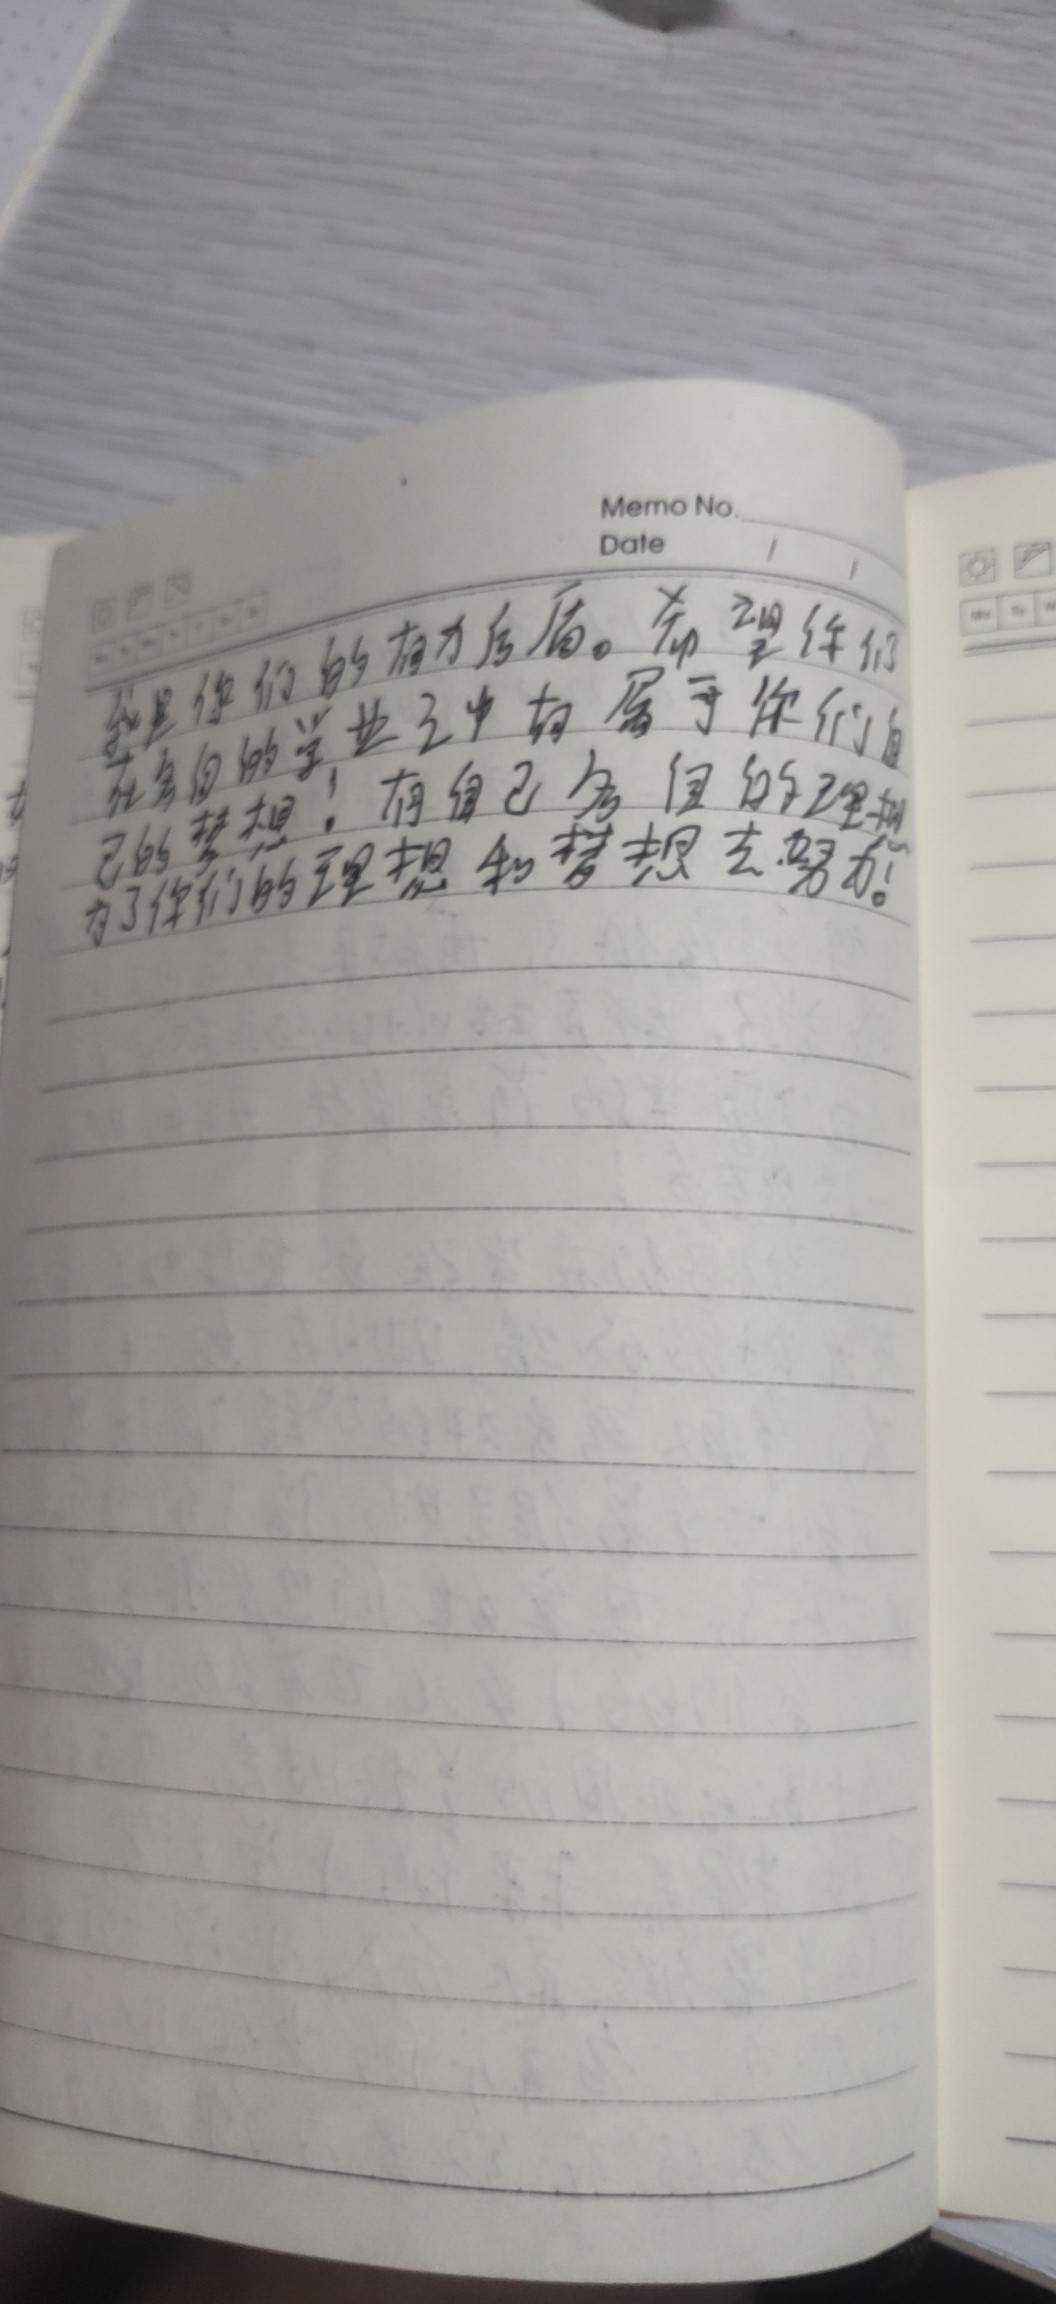 Memo No.
Date / /
我是你们的有力后盾。希望你们
在各自的学业之中有属于你们自
己的梦想！有自己各自的理想
为了你们的理想和梦想去努力！